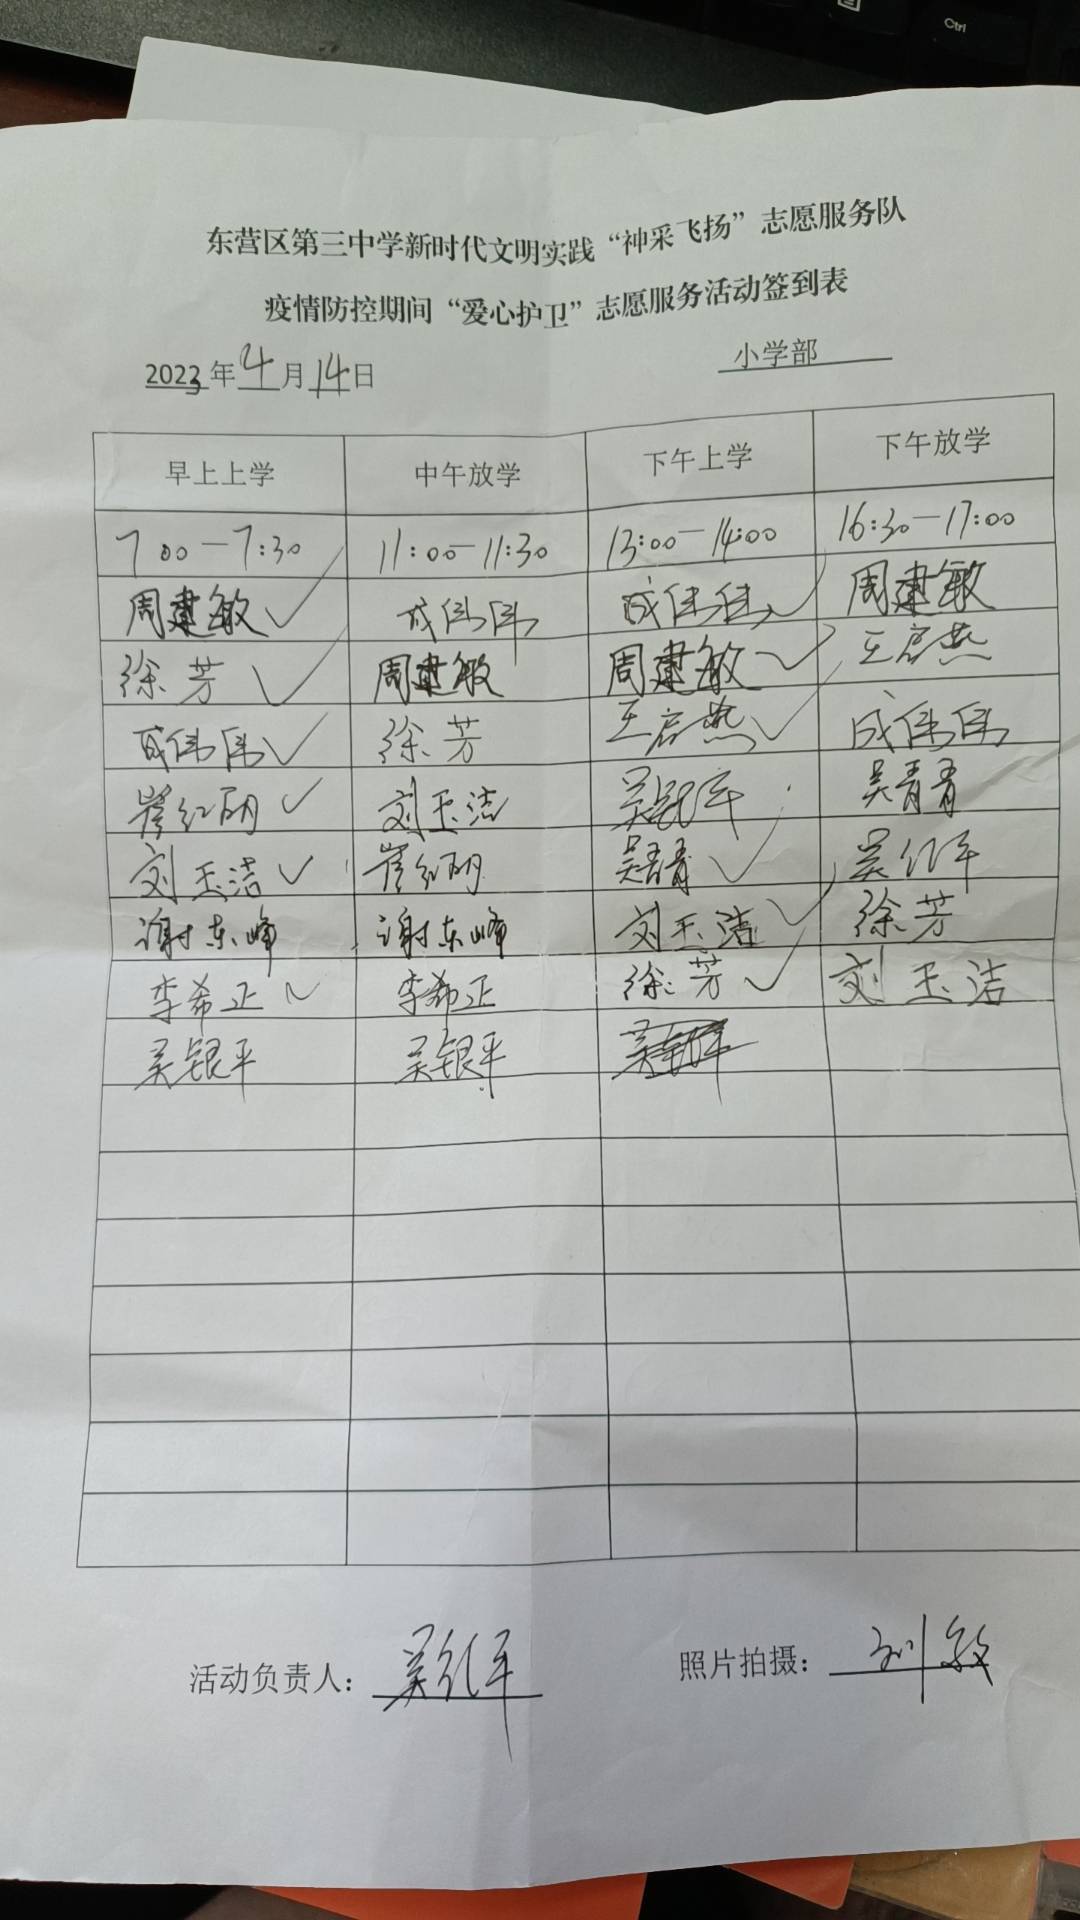 Ctrl
东营区第三中学新时代文明实践“神采飞扬”志愿服务队
疫情防控期间“爱心护卫”志愿服务活动签到表
2023年4月14日 小学部
早上上学 中午放学 下午上学 下午放学
7 00-7:30 11:00-11:30 13:00-14:00 16:30-17:00
周建敏 成伟伟 成伟伟 周建敏
徐芳 周建敏 周建敏 王启燕
成伟伟 徐芳 王启燕 成伟伟
崔红丽 刘玉洁 吴银平 吴青青
刘玉洁 崔红丽 吴青青 吴红平
谢东峰 谢东峰 刘玉洁 徐芳
李希正 李希正 徐芳 刘玉洁
吴银平 吴银平
活动负责人: 照片拍摄: 刘敏